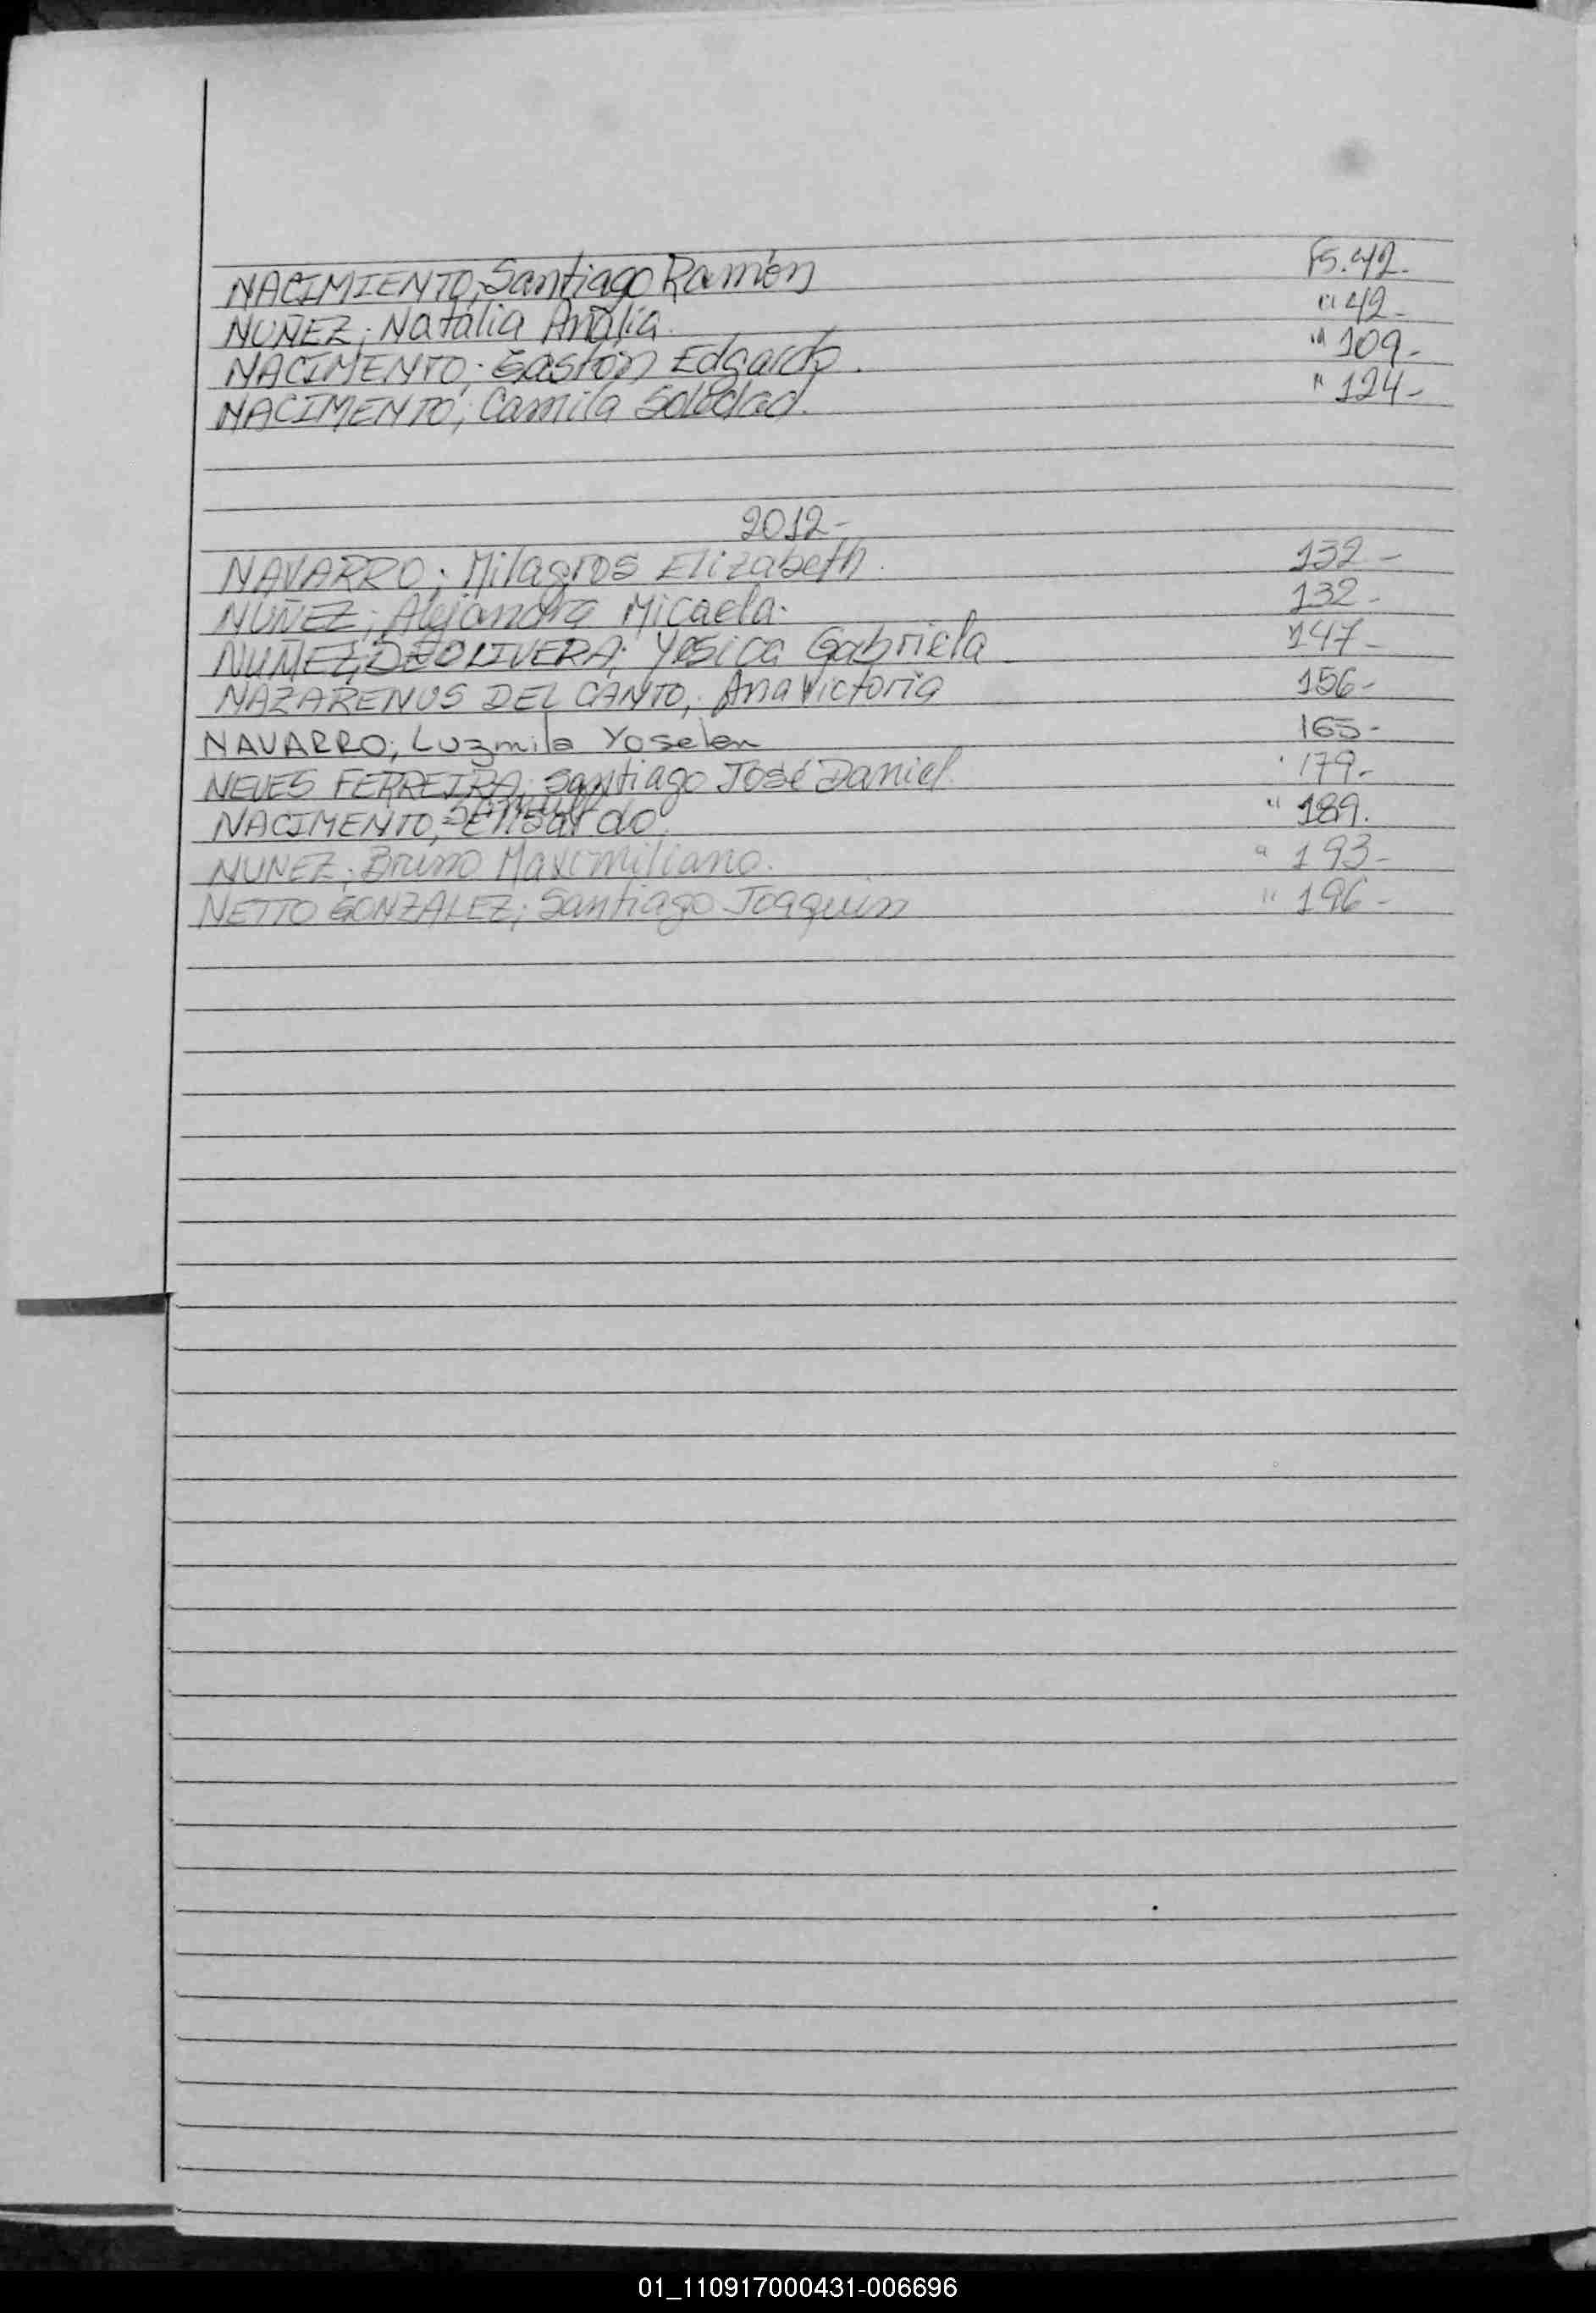 NACIMIENTO; Santiago Ramón Fs. 42.
NUÑEZ; Natalia Analía. " 42-
NACIMENTO; Gastón Edgardo. " 109-
NACIMENTO; Camila Soledad. " 124-
2012-
NAVARRO; Milagros Elizabeth. 132-
NUÑEZ; Alejandra Micaela. 132-
DE OLIVERA; Yesica Gabriela 147-
NAZARENUS DEL CANTO; Ana Victoria 156-
NAVARRO; Luzmila Yoselen 165-
NEVES FERREIRA; Santiago José Daniel. 179-
NACIMENTO; " 189.
NUNEZ; Bruno Maximiliano. " 193-
NETTO GONZALEZ; Santiago Joaquin " 196-
01_110917000431-006696